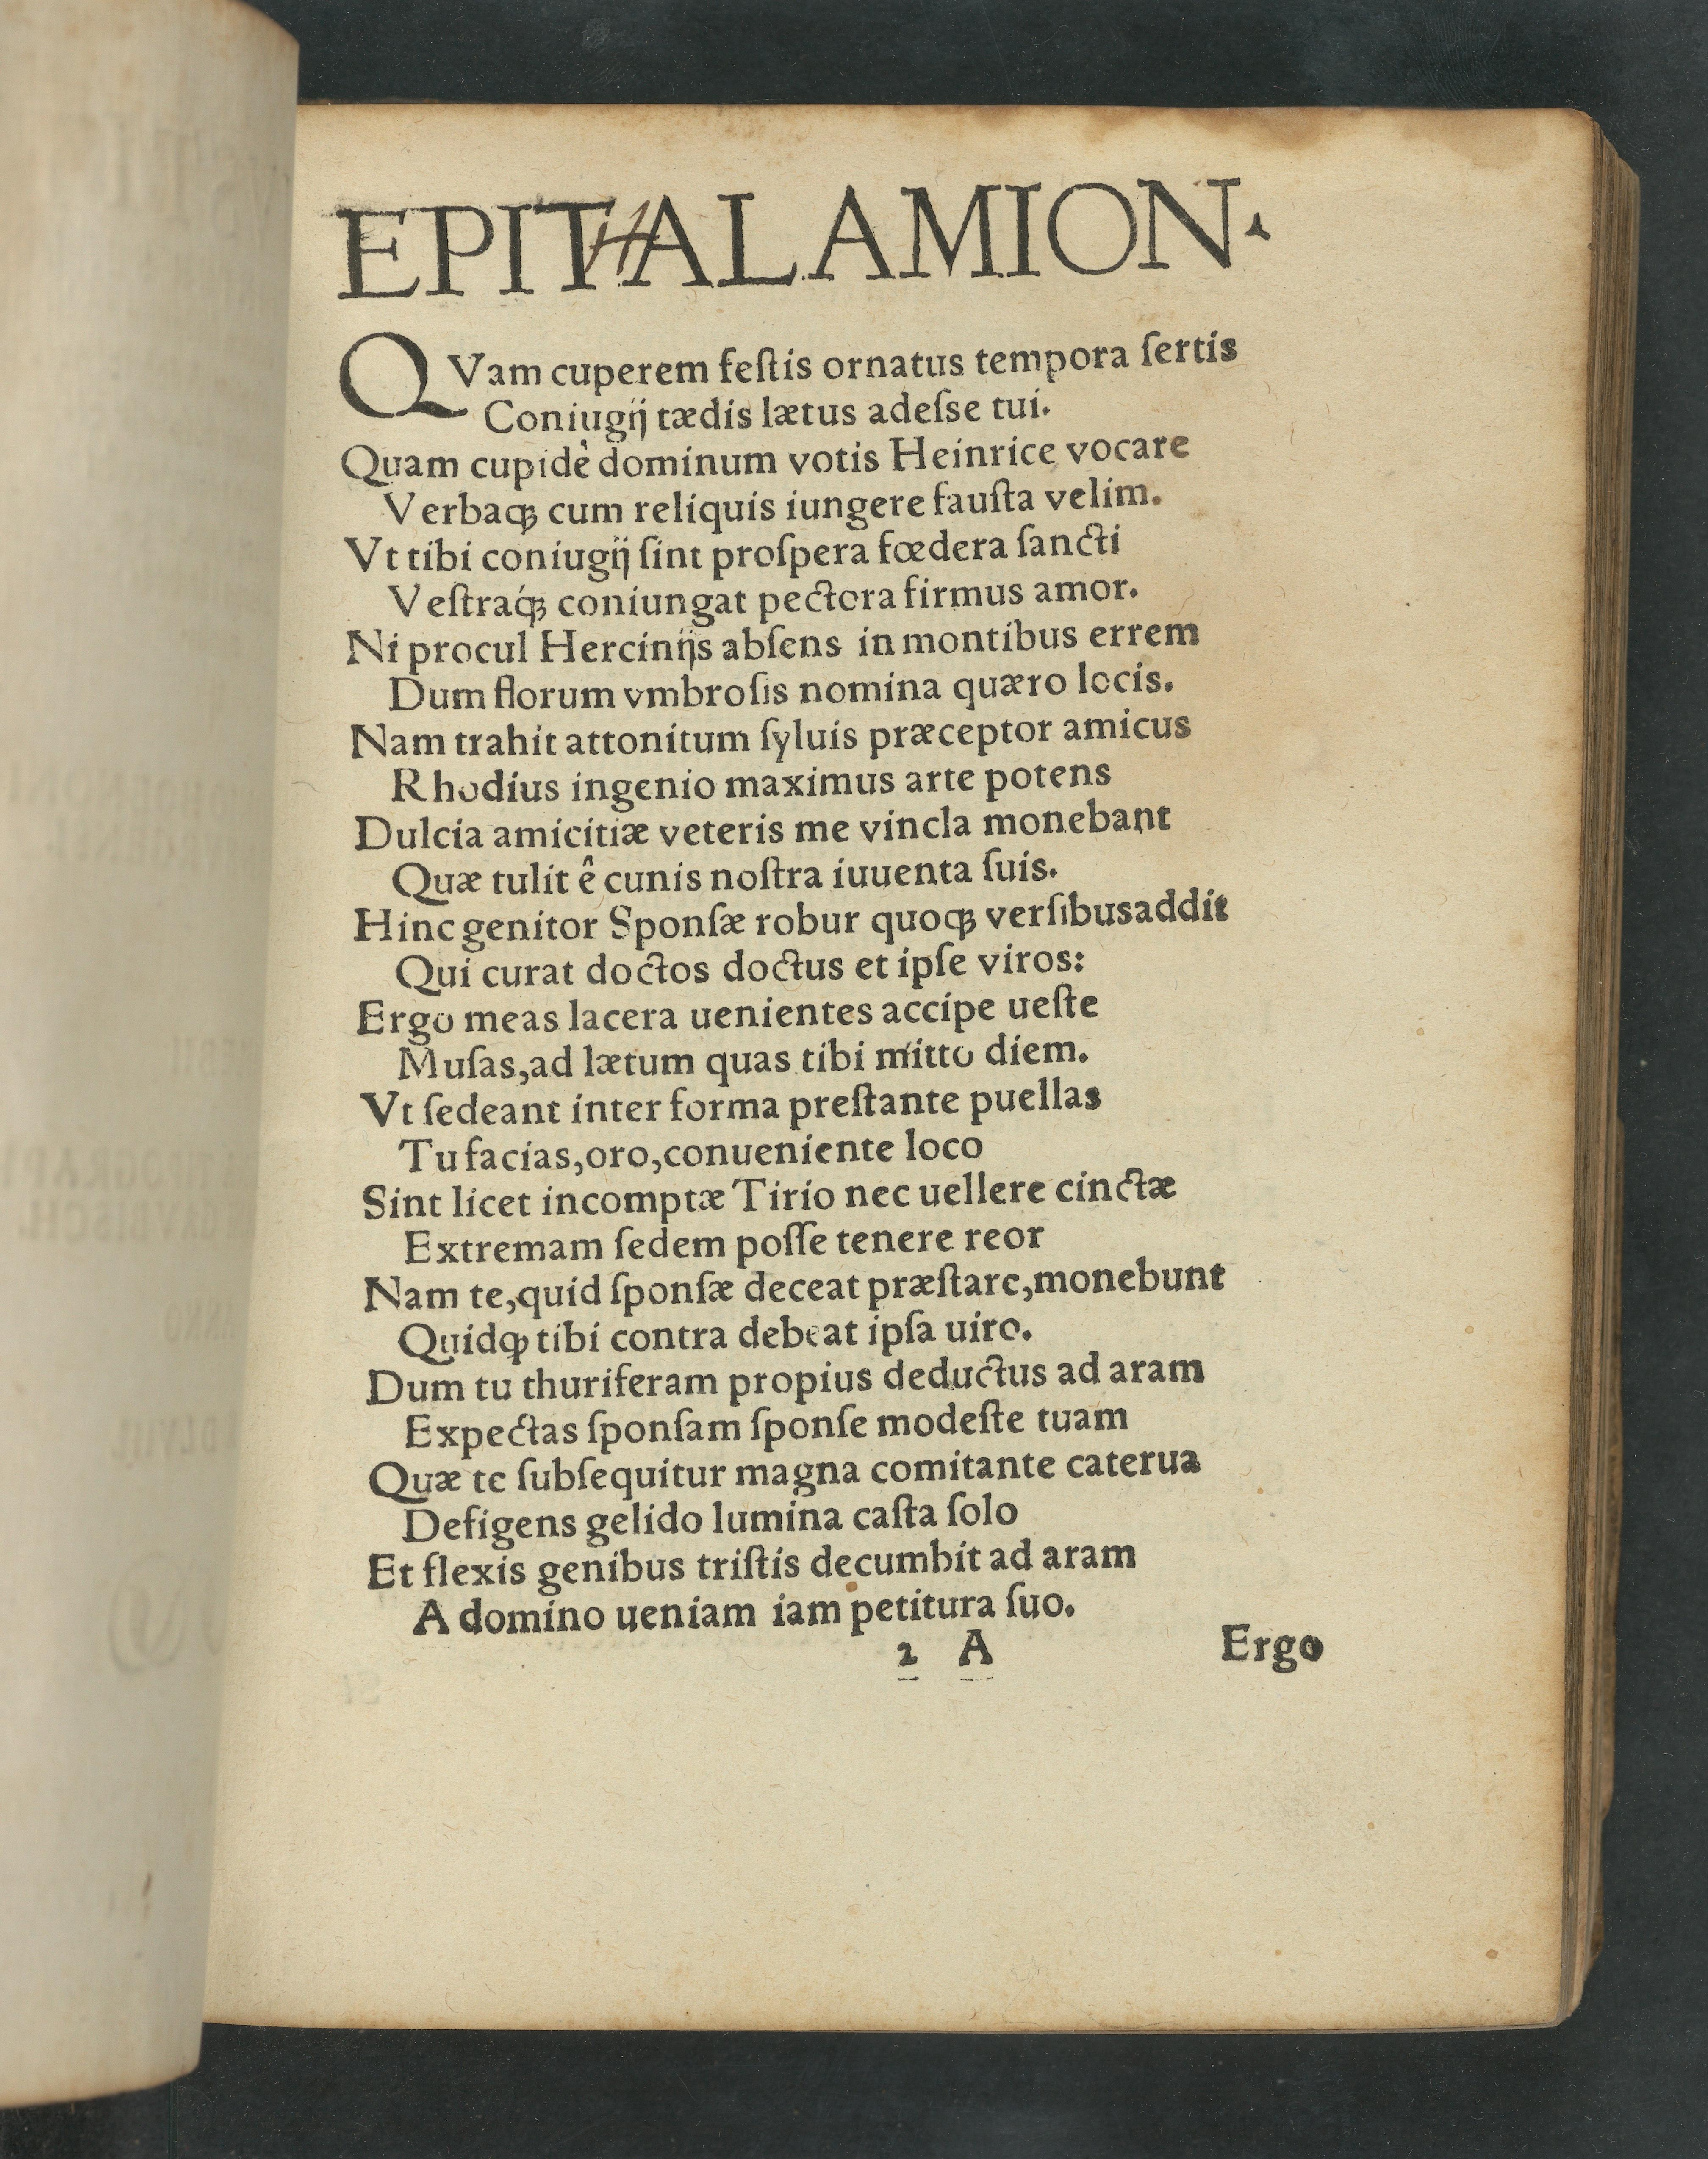 EPITHALAMION.
QVam cuperem feſtis ornatus tempora ſertis
Coniugij tædis lætus adeſse tui.
Quam cupidè dominum votis Heinrice vocare
Verbaqꝫ cum reliquis iungere fauſta velim.
Vt tibi coniugij ſint proſpera fœdera ſancti
Veſtraq́ꝫ coniungat pectora firmus amor.
Ni procul Hercinijs abſens in montibus errem
Dum florum vmbroſis nomina quæro locis.
Nam trahit attonitum ſyluis præceptor amicus
Rhodius ingenio maximus arte potens
Dulcia amicitiæ veteris me vincla monebant
Quæ tulit ê cunis noſtra iuuenta ſuis.
Hinc genitor Sponſæ robur quoqꝫ verſibusaddit
Qui curat doctos doctus et ipſe viros:
Ergo meas lacera uenientes accipe ueſte
Muſas,ad lætum quas tibi mitto diem.
Vt ſedeant inter forma preſtante puellas
Tu facias,oro,conueniente loco
Sint licet incomptæ Tirio nec uellere cinctæ
Extremam ſedem poſſe tenere reor
Nam te,quid ſponſæ deceat præſtare,monebunt
Quidqꝫ tibi contra debeat ipſa uiro.
Dum tu thuriferam propius deductus ad aram
Expectas ſponſam ſponſe modeſte tuam
Quæ te ſubſequitur magna comitante caterua
Defigens gelido lumina caſta ſolo
Et flexis genibus triſtis decumbit ad aram
A domino ueniam iam petitura ſuo.
2 A Ergo